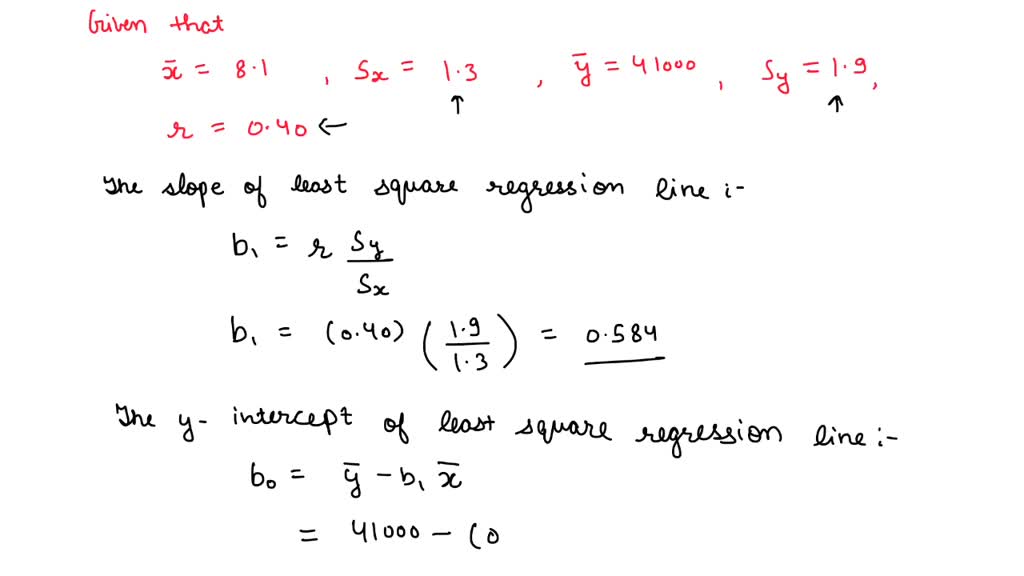 Given that
x̄ = 8.1 , Sx = 1.3 , ȳ = 41000 , Sy = 1.9,
↑ ↑
r = 0.40 ←
The slope of least square regression line :-
b₁ = r Sy/Sx
b₁ = (0.40) (1.9/1.3) = 0.584
The y- intercept of least square regression line :-
b₀ = ȳ - b₁ x̄
= 41000 - (0